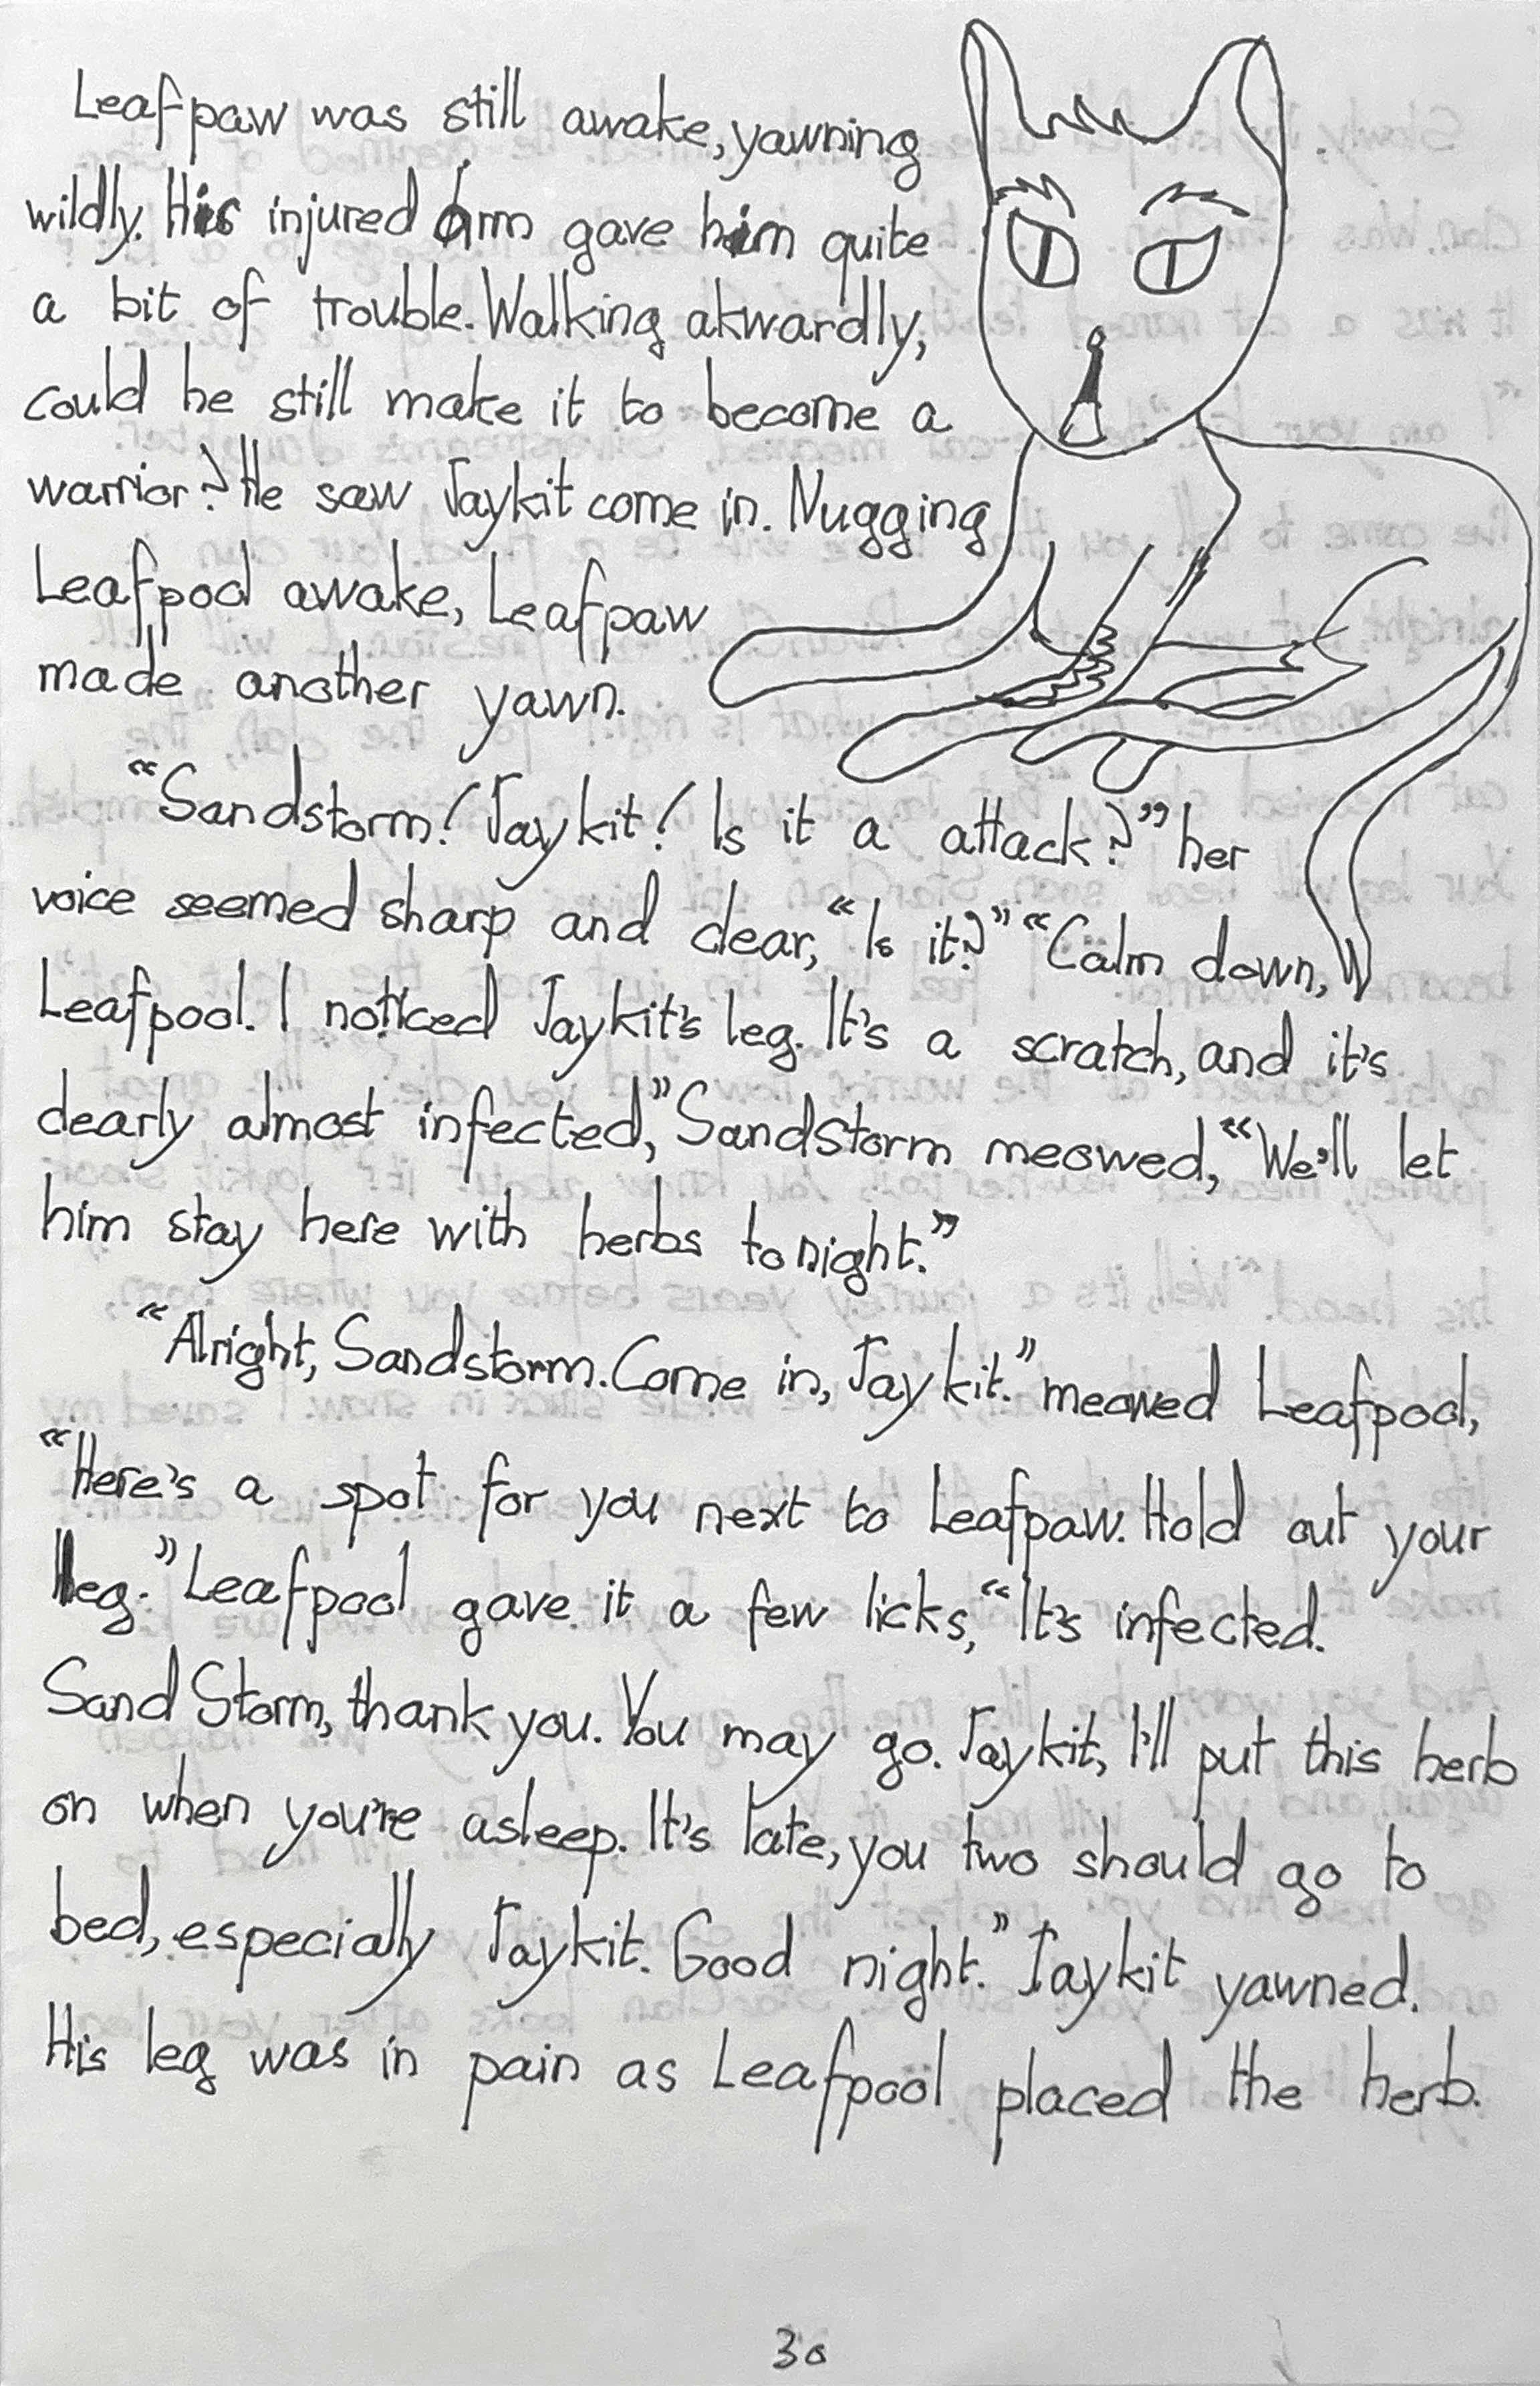 Leafpaw was still awake, yawning
wildly. His injured arm gave him quite
a bit of trouble. Walking akwardly,
could he still make it to become a
warrior? He saw Jaykit come in. Nugging
Leafpool awake, Leafpaw
made another yawn.
“Sandstorm! Jaykit! Is it a attack?” her
voice seemed sharp and clear, “Is it?” “Calm down,
Leafpool. I noticed Jaykit's leg. It's a scratch, and it's
clearly almost infected,” Sandstorm meowed, “We'll let
him stay here with herbs tonight.”
“Alright, Sandstorm. Come in, Jaykit.” meowed Leafpool,
“Here's a spot for you next to Leafpaw. Hold out your
leg.” Leafpool gave it a few licks, “It's infected.
Sand Storm, thank you. You may go. Jaykit, I'll put this herb
on when you're asleep. It's late, you two should go to
bed, especially Jaykit. Good night.” Jaykit yawned.
His leg was in pain as Leafpool placed the herb.
30